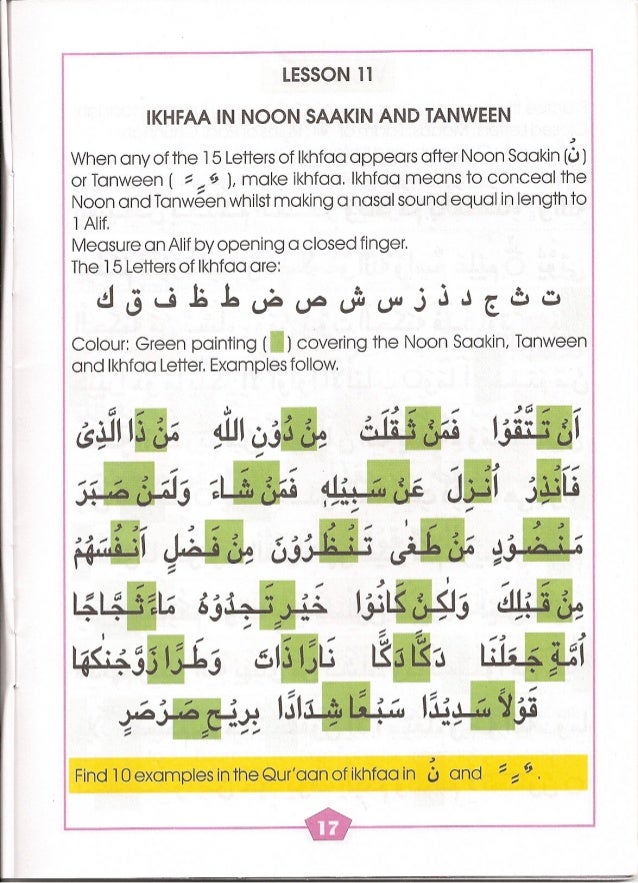 LESSON 11
IKHFAA IN NOON SAAKIN AND TANWEEN
When any of the 15 Letters of Ikhfaa appears after Noon Saakin (نْ)
or Tanween ( ً ٍ ٌ ), make ikhfaa. Ikhfaa means to conceal the
Noon and Tanween whilst making a nasal sound equal in length to
1 Alif.
Measure an Alif by opening a closed finger.
The 15 Letters of Ikhfaa are:
ت ث ج د ذ ز س ش ص ض ط ظ ف ق ك
Colour: Green painting ( ) covering the Noon Saakin, Tanween
and Ikhfaa Letter. Examples follow.
اَنْ تَتَّقُوْا فَمَنْ ثَقُلَتْ مِنْ دُوْنِ اللّٰهِ مِنْ ذَا الَّذِىْ
فَاَنْذِرْ اُنْزِلَ عَنْ سَبِيْلِهٖ فَمَنْ شَآءَ وَلَمَنْ صَبَرَ
مَنْضُوْدٍ مَنْ طَغٰى تَنْظُرُوْنَ مِنْ فَضْلٍ اَنْفُسَهُمْ
مِنْ قَبْلِكَ وَلٰكِنْ كَانُوْا خَيْرٍ تَجِدُوْهُ مَآءً ثَجَّاجًا
اُمَّةٍ جَعَلْنَا دَكًّا دَكًّا نَارًا ذَاتَ وَطَرًا زَوَّجْنٰكَهَا
قَوْلًا سَدِيْدًا سَبْعًا شِدَادًا بِرِيْحٍ صَرْصَرٍ
Find 10 examples in the Qur'aan of ikhfaa in نْ and ً ٍ ٌ .
17